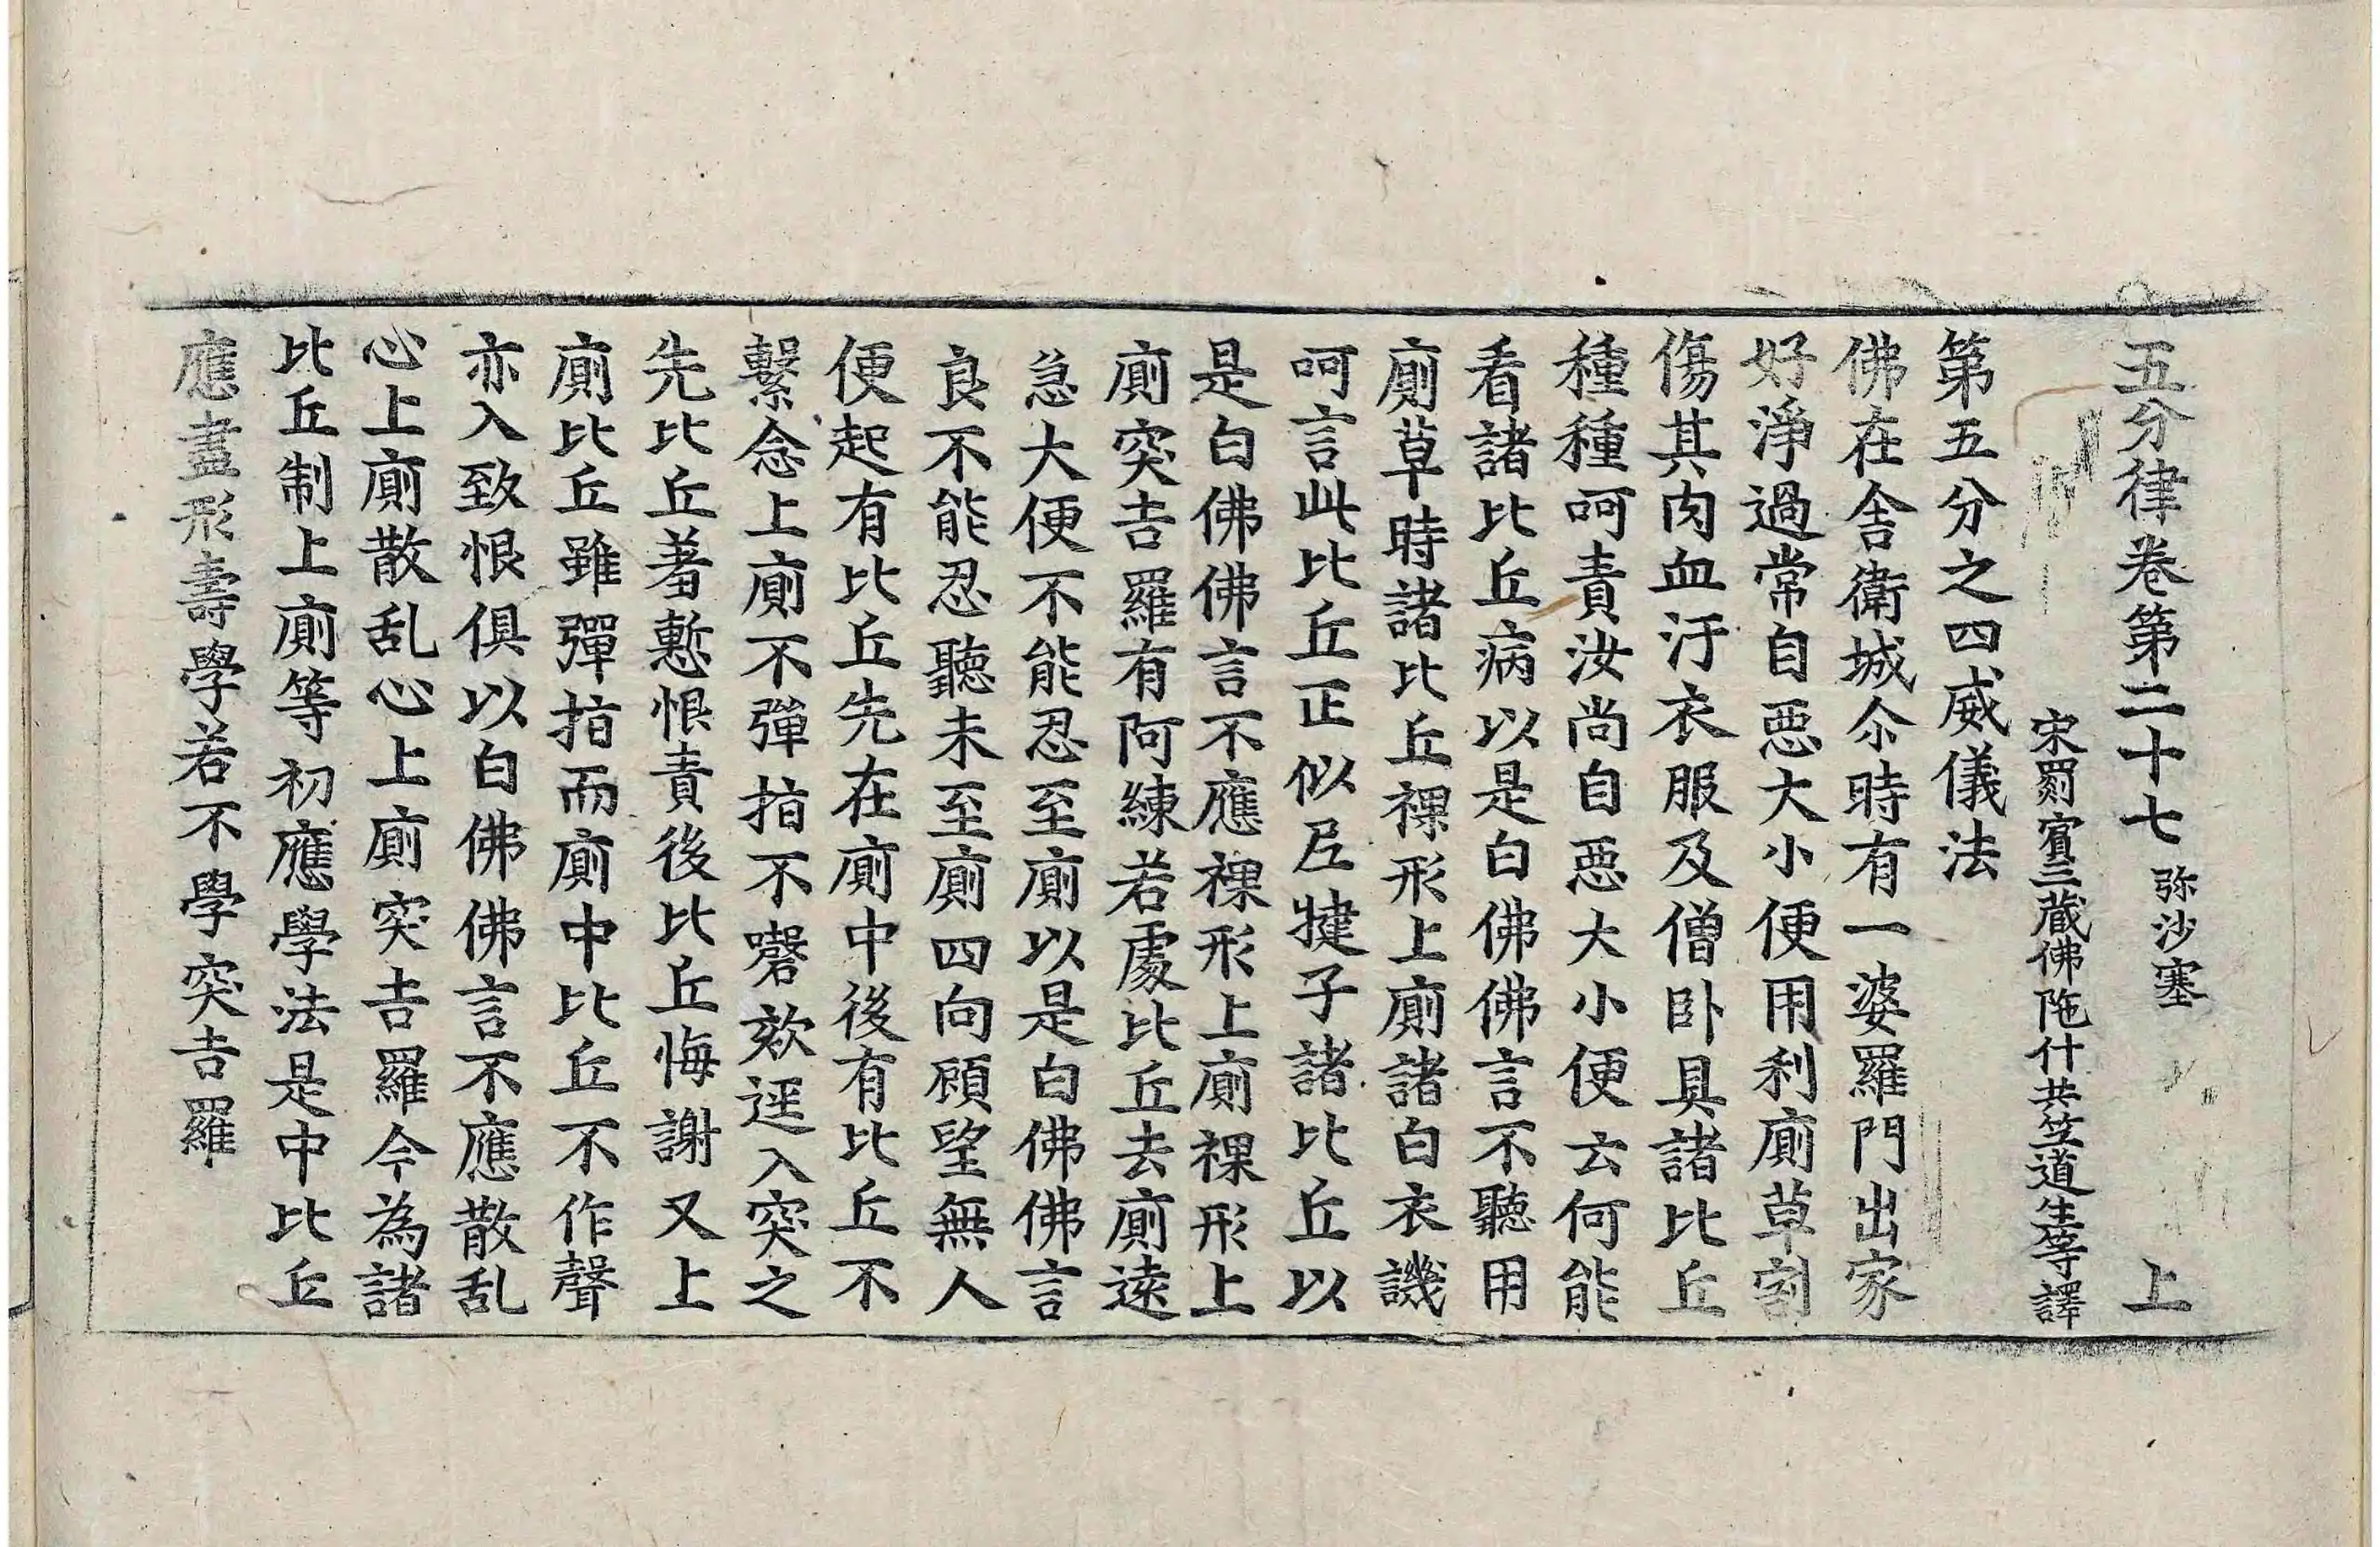 五分律卷第二十七 弥沙塞 上
宋罽賔三藏佛陁什共笁道生等譯
第五分之四威儀法
佛在舍衛城尒時有一婆羅門出家
好淨過常自惡大小便用利廁草割
傷其肉血汙衣服及僧卧具諸比丘
種種呵責汝尚自惡大小便云何能
看諸比丘病以是白佛佛言不聽用
廁草時諸比丘裸形上廁諸白衣譏
呵言此比丘正似尼揵子諸比丘以
是白佛佛言不應裸形上廁裸形上
廁突吉羅有阿練若處比丘去廁遠
急大便不能忍至廁以是白佛佛言
良不能忍聽未至廁四向顧望無人
便起有比丘先在廁中後有比丘不
繫念上廁不彈指不謦欬逕入突之
先比丘著慙恨責後比丘悔謝又上
廁比丘雖彈指而廁中比丘不作聲
亦入致恨俱以白佛佛言不應散乱
心上廁散乱心上廁突吉羅今為諸
比丘制上廁等初應學法是中比丘
應盡形壽學若不學突吉羅